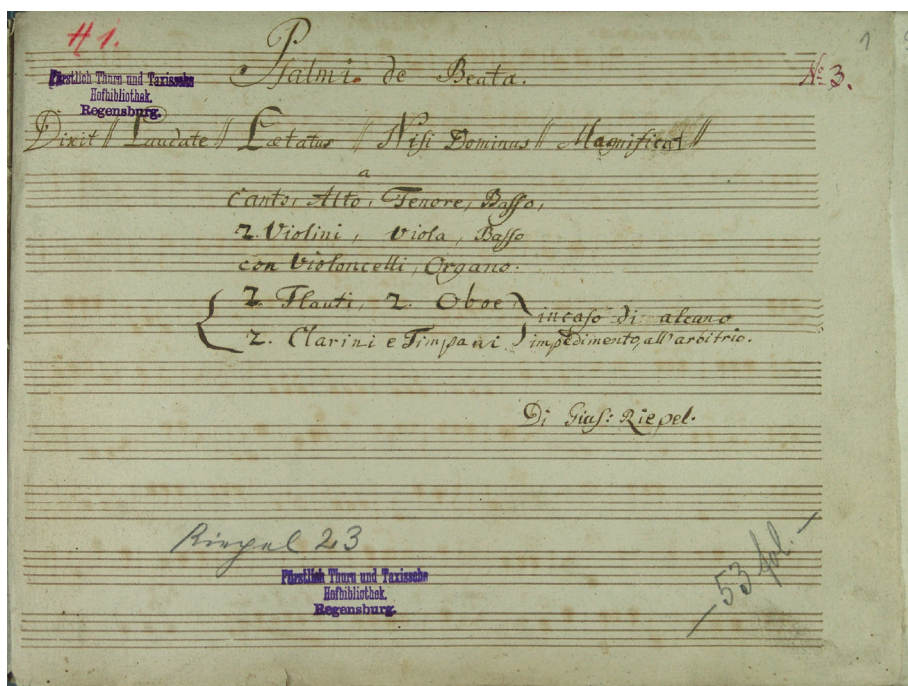 H 1.
1
Psalmi. de Beata.
No 3.
Fürstlich Thurn und Taxissche
Hofbibliothek.
Regensburg.
Dixit // Laudate // Lætatus // Nisi Dominus // Magnificat //
a
Canto, Alto, Tenore, Basso,
2. Violini, Viola, Basso
con Violoncelli, Organo.
2. Flauti, 2. Oboe
2. Clarini e Timpani
in caso di alcuno
impedimento, all' arbitrio.
Di Gius: Riepel.
Riepel 23
Fürstlich Thurn und Taxissche
Hofbibliothek.
Regensburg.
53 fol.